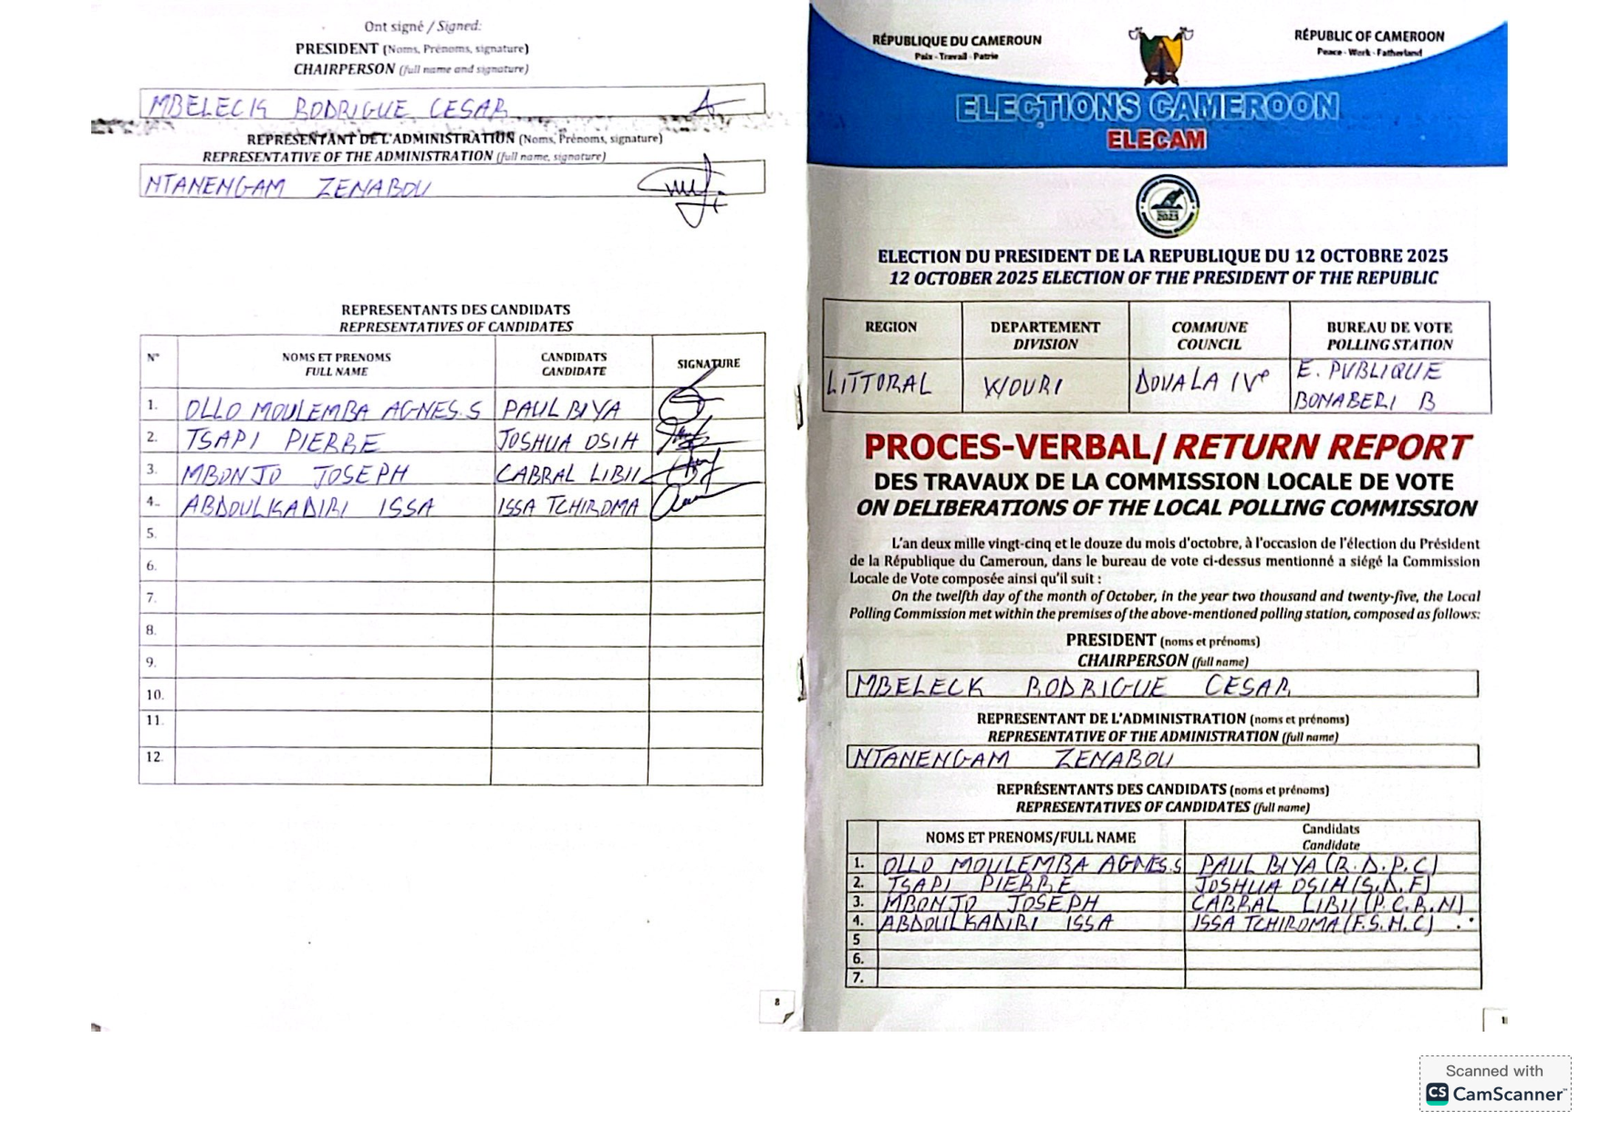 Ont signé / Signed:
PRESIDENT (Noms, Prénoms, signature)
CHAIRPERSON (full name and signature)
MBELECK RODRIGUE CESAR
REPRESENTANT DE L'ADMINISTRATION (Noms, Prénoms, signature)
REPRESENTATIVE OF THE ADMINISTRATION (full name, signature)
NTANENGAM ZENABOU
REPRESENTANTS DES CANDIDATS
REPRESENTATIVES OF CANDIDATES
N° NOMS ET PRENOMS FULL NAME CANDIDATS CANDIDATE SIGNATURE
1. OLLO MOULEMBA AGNES.S PAUL BIYA
2. TSAPI PIERRE JOSHUA OSIH
3. MBONJO JOSEPH CABRAL LIBII
4. ABDOULKADIRI ISSA ISSA TCHIROMA
5.
6.
7.
8.
9.
10.
11.
12.
8
RÉPUBLIQUE DU CAMEROUN
Paix - Travail - Patrie
RÉPUBLIC OF CAMEROON
Peace - Work - Fatherland
ELECTIONS CAMEROON
ELECAM
2025
ELECTION DU PRESIDENT DE LA REPUBLIQUE DU 12 OCTOBRE 2025
12 OCTOBER 2025 ELECTION OF THE PRESIDENT OF THE REPUBLIC
REGION DEPARTEMENT DIVISION COMMUNE COUNCIL BUREAU DE VOTE POLLING STATION
LITTORAL WOURI DOUALA IVe E. PUBLIQUE
BONABERI B
PROCES-VERBAL/ RETURN REPORT
DES TRAVAUX DE LA COMMISSION LOCALE DE VOTE
ON DELIBERATIONS OF THE LOCAL POLLING COMMISSION
L'an deux mille vingt-cinq et le douze du mois d'octobre, à l'occasion de l'élection du Président
de la République du Cameroun, dans le bureau de vote ci-dessus mentionné a siégé la Commission
Locale de Vote composée ainsi qu'il suit :
On the twelfth day of the month of October, in the year two thousand and twenty-five, the Local
Polling Commission met within the premises of the above-mentioned polling station, composed as follows:
PRESIDENT (noms et prénoms)
CHAIRPERSON (full name)
MBELECK RODRIGUE CESAR
REPRESENTANT DE L'ADMINISTRATION (noms et prénoms)
REPRESENTATIVE OF THE ADMINISTRATION (full name)
NTANENGAM ZENABOU
REPRÉSENTANTS DES CANDIDATS (noms et prénoms)
REPRESENTATIVES OF CANDIDATES (full name)
NOMS ET PRENOMS/FULL NAME Candidats Candidate
1. OLLO MOULEMBA AGNES.S PAUL BIYA (R.D.P.C)
2. TSAPI PIERRE JOSHUA OSIH (S.D.F)
3. MBONJO JOSEPH CABRAL LIBII (P.C.R.N)
4. ABDOULKADIRI ISSA ISSA TCHIROMA (F.S.N.C)
5
6.
7.
Scanned with
CS CamScanner